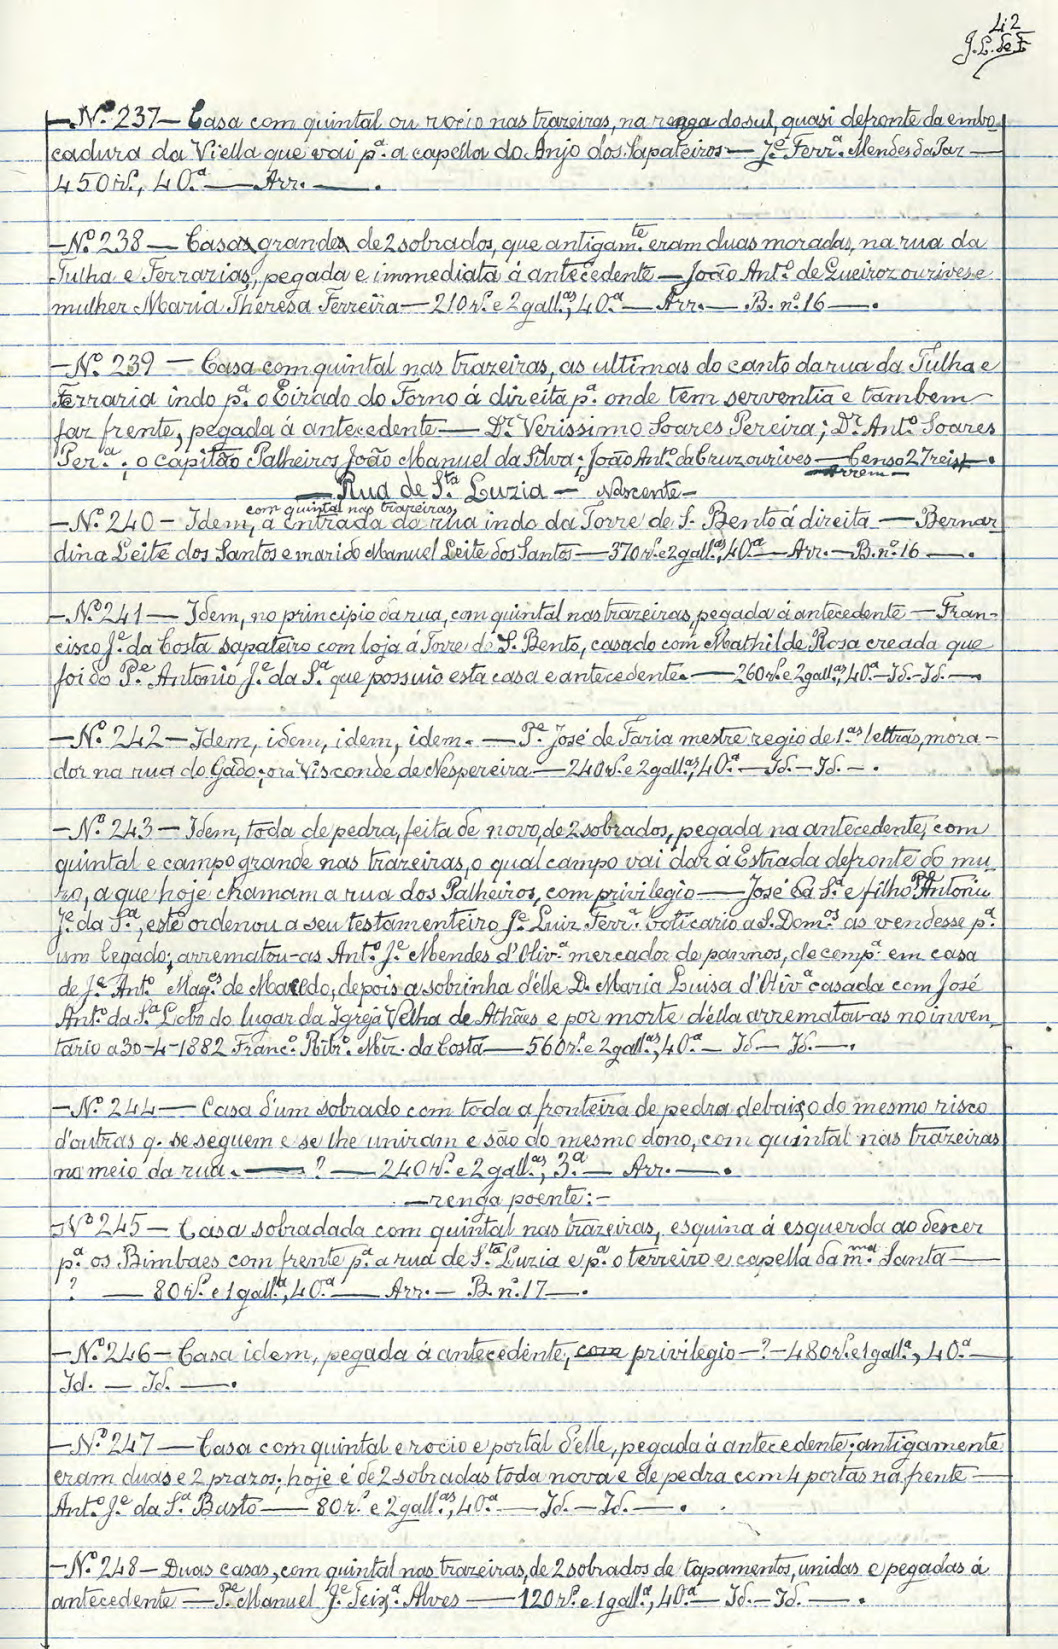 42
J. L. de F.
— Nº 237 — Casa com quintal ou rocio nas trazeiras, na renga do sul, quasi defronte da embo-
cadura da Viella que vai pª. a capella do Anjo dos Sapateiros — Jé. Ferrª. Mendes da Paz —
450 rs., 40.ª — Arr. — .
— Nº 238 — Casa grande de 2 sobrados, que antigam.te eram duas moradas, na rua da
Tulha e Ferrarias, pegada e immediata á antecedente — João Antº. de Queiroz ourives e
mulher Maria Thereza Ferreira — 210 rs. e 2 gall.as, 40.ª — Arr. — B. nº. 16 — .
— Nº 239 — Casa com quintal nas trazeiras, as ultimas do canto da rua da Tulha e
Ferraria indo pª. o Eirado do Forno á direita pª. onde tem serventia e tambem
faz frente, pegada á antecedente — Dr. Verissimo Soares Pereira; Dr. Antº. Soares
Per.ª; o capitão Palheiros João Manuel da Silva; João Antº. da Cruz ourives — Censo 27 reis — .
— Arrem —
— Rua de S.ta Luzia — Nascente —
com quintal nas trazeiras
— Nº 240 — Idem, á entrada da rua indo da Torre de S. Bento á direita — Bernar-
dina Leite dos Santos e marido Manuel Leite dos Santos — 370 rs. e 2 gall.as, 40.ª — Arr. — B. nº. 16 — .
— Nº 241 — Idem, no principio da rua, com quintal nas trazeiras, pegada á antecedente — Fran-
cisco Jé. da Costa sapateiro com loja á Torre de S. Bento, casado com Mathilde Rosa creada que
foi do Pe. Antonio Jé. da Sª. que possuio esta casa e antecedente. — 260 rs. e 2 gall.as, 40.ª — Id. — Id. — .
— Nº 242 — Idem, idem, idem, idem. — Pe. José de Faria mestre regio de 1.as lettras, mora-
dor na rua do Gado; ora Visconde de Nespereira — 240 rs. e 2 gall.as, 40.ª — Id. — Id. — .
— Nº 243 — Idem, toda de pedra, feita de novo, de 2 sobrados, pegada na antecedente, com
quintal e campo grande nas trazeiras, o qual campo vai dar á Estrada defronte do mu-
ro, a que hoje chamam a rua dos Palheiros, com privilegio — José da Sª. e filho Pe. Antonio
Jé. da Sª., este ordenou a seu testamenteiro Jé. Luiz Ferrª. boticario a S. Dom.os as vendesse pª.
um legado; arrematou-as Antº. Jé. Mendes d'Olivª. mercador de pannos, de compª. em casa
de Jé. Antº. Mag.es de Macedo, depois a sobrinha d'elle D. Maria Luisa d'Olivª. casada com José
Antº. da Sª. Lobo do lugar da Igreja Velha de Athães e por morte d'ella arrematou-as no inven-
tario a 30-4-1882 Francº. Ribrº. Miz. da Costa — 560 rs. e 2 gall.as, 40.ª — Id — Id. — .
— Nº 244 — Casa d'um sobrado com toda a fronteira de pedra debaixo do mesmo risco
d'outras q. se seguem e se lhe uniram e são do mesmo dono, com quintal nas trazeiras
no meio da rua. — ? — 240 rs. e 2 gall.as, 3.ª — Arr. — .
— renga poente: —
— Nº 245 — Casa sobradada com quintal nas trazeiras, esquina á esquerda ao descer
pª. os Bimbaes com frente pª. a rua de S.ta Luzia e pª. o terreiro e capella da m.ma Santa —
? — 80 rs. e 1 gall.ª, 40.ª — Arr. — B. nº. 17 — .
— Nº 246 — Casa idem, pegada á antecedente, com privilegio — ? — 480 rs. e 1 gall.ª, 40.ª —
Id. — Id. — .
— Nº 247 — Casa com quintal e rocio e portal d'elle, pegada á antecedente; antigamente
eram duas e 2 prazos; hoje é de 2 sobradas toda nova e de pedra com 4 portas na frente —
Antº. Jé. da Sª. Basto — 80 rs. e 2 gall.as, 40.ª — Id. — Id. — .
— Nº 248 — Duas casas, com quintal nas trazeiras, de 2 sobrados de tapamentos, unidas e pegadas á
antecedente — Pe. Manuel Jé. Teixª. Alves — 120 rs. e 1 gall.ª, 40.ª — Id. — Id. — .